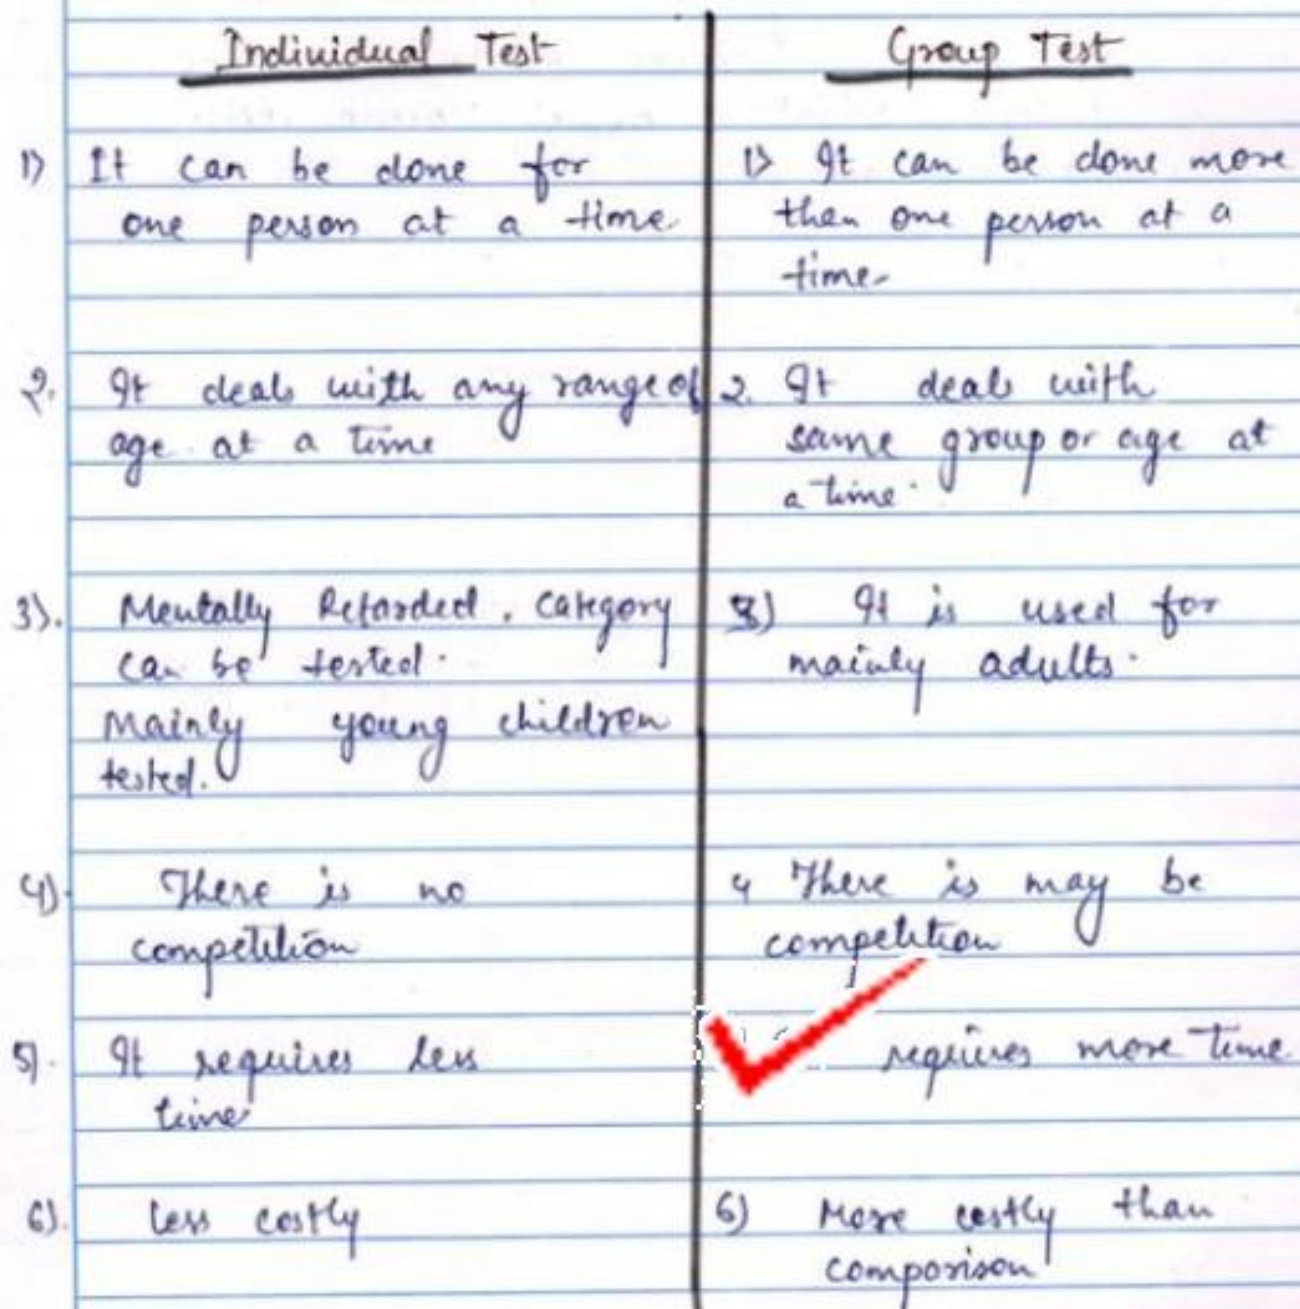 Individual Test
1) It can be done for
one person at a time
2. It deals with any range of
age at a time
3). Mentally Retarded. Category
can be tested.
Mainly young children
tested.
4). There is no
competition
5). It requires less
time
6). less costly
Group Test
1) It can be done more
then one person at a
time.
2. It deals with
same group or age at
a time.
3) It is used for
mainly adults.
4 There is may be
competition
requires more time
6) More costly than
comparison